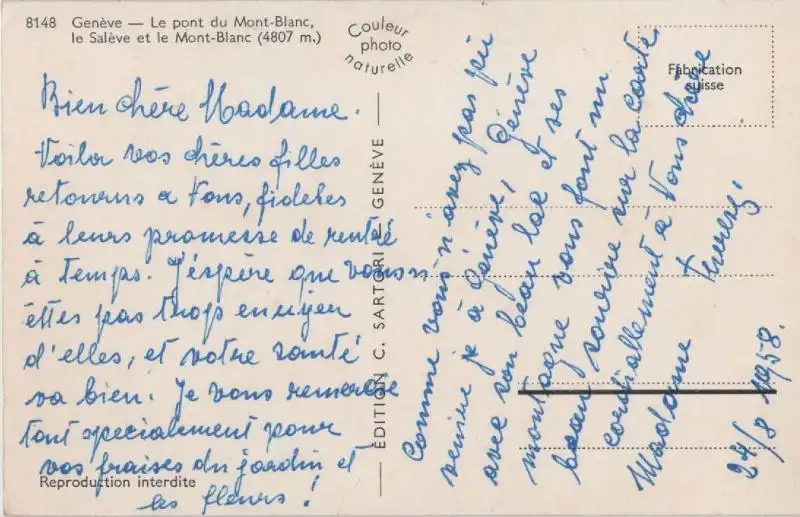 8148 Genève — Le pont du Mont-Blanc,
le Salève et le Mont-Blanc (4807 m.)
Couleur
photo
naturelle
Fabrication
suisse
Bien chère Madame.
Voila vos chères filles
retourns a Vous, fideles
à leurs promesse de rentré
à temps. J'éspère que vous n
êttes pas trop ennuyer
d'elles, et votre santé
va bien. Je vous remercie
tant specialement pour
vos fraises du jardin et
les fleurs!
Comme vous n'avez pas pu
venire je à Génève, Génève
avec son beau lac et ses
montagne vous font un
beau sourire sur la carte
cordiallement à Vous chère
Madame
24/8 1958.
ÉDITION C. SARTORI GENÈVE
Reproduction interdite